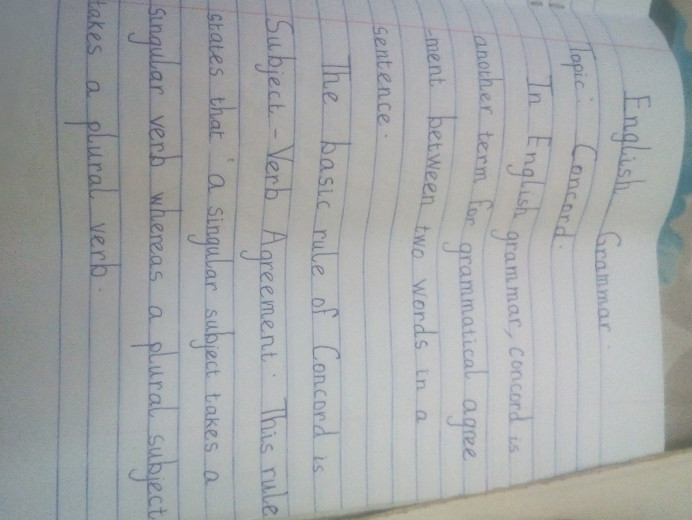 English Grammar.
Topic: Concord.
In English grammar, concord is
another term for grammatical agree
-ment between two words in a
sentence.
The basic rule of Concord is
Subject - Verb Agreement. This rule
states that a singular subject takes a
singular verb whereas a plural subject
takes a plural verb.